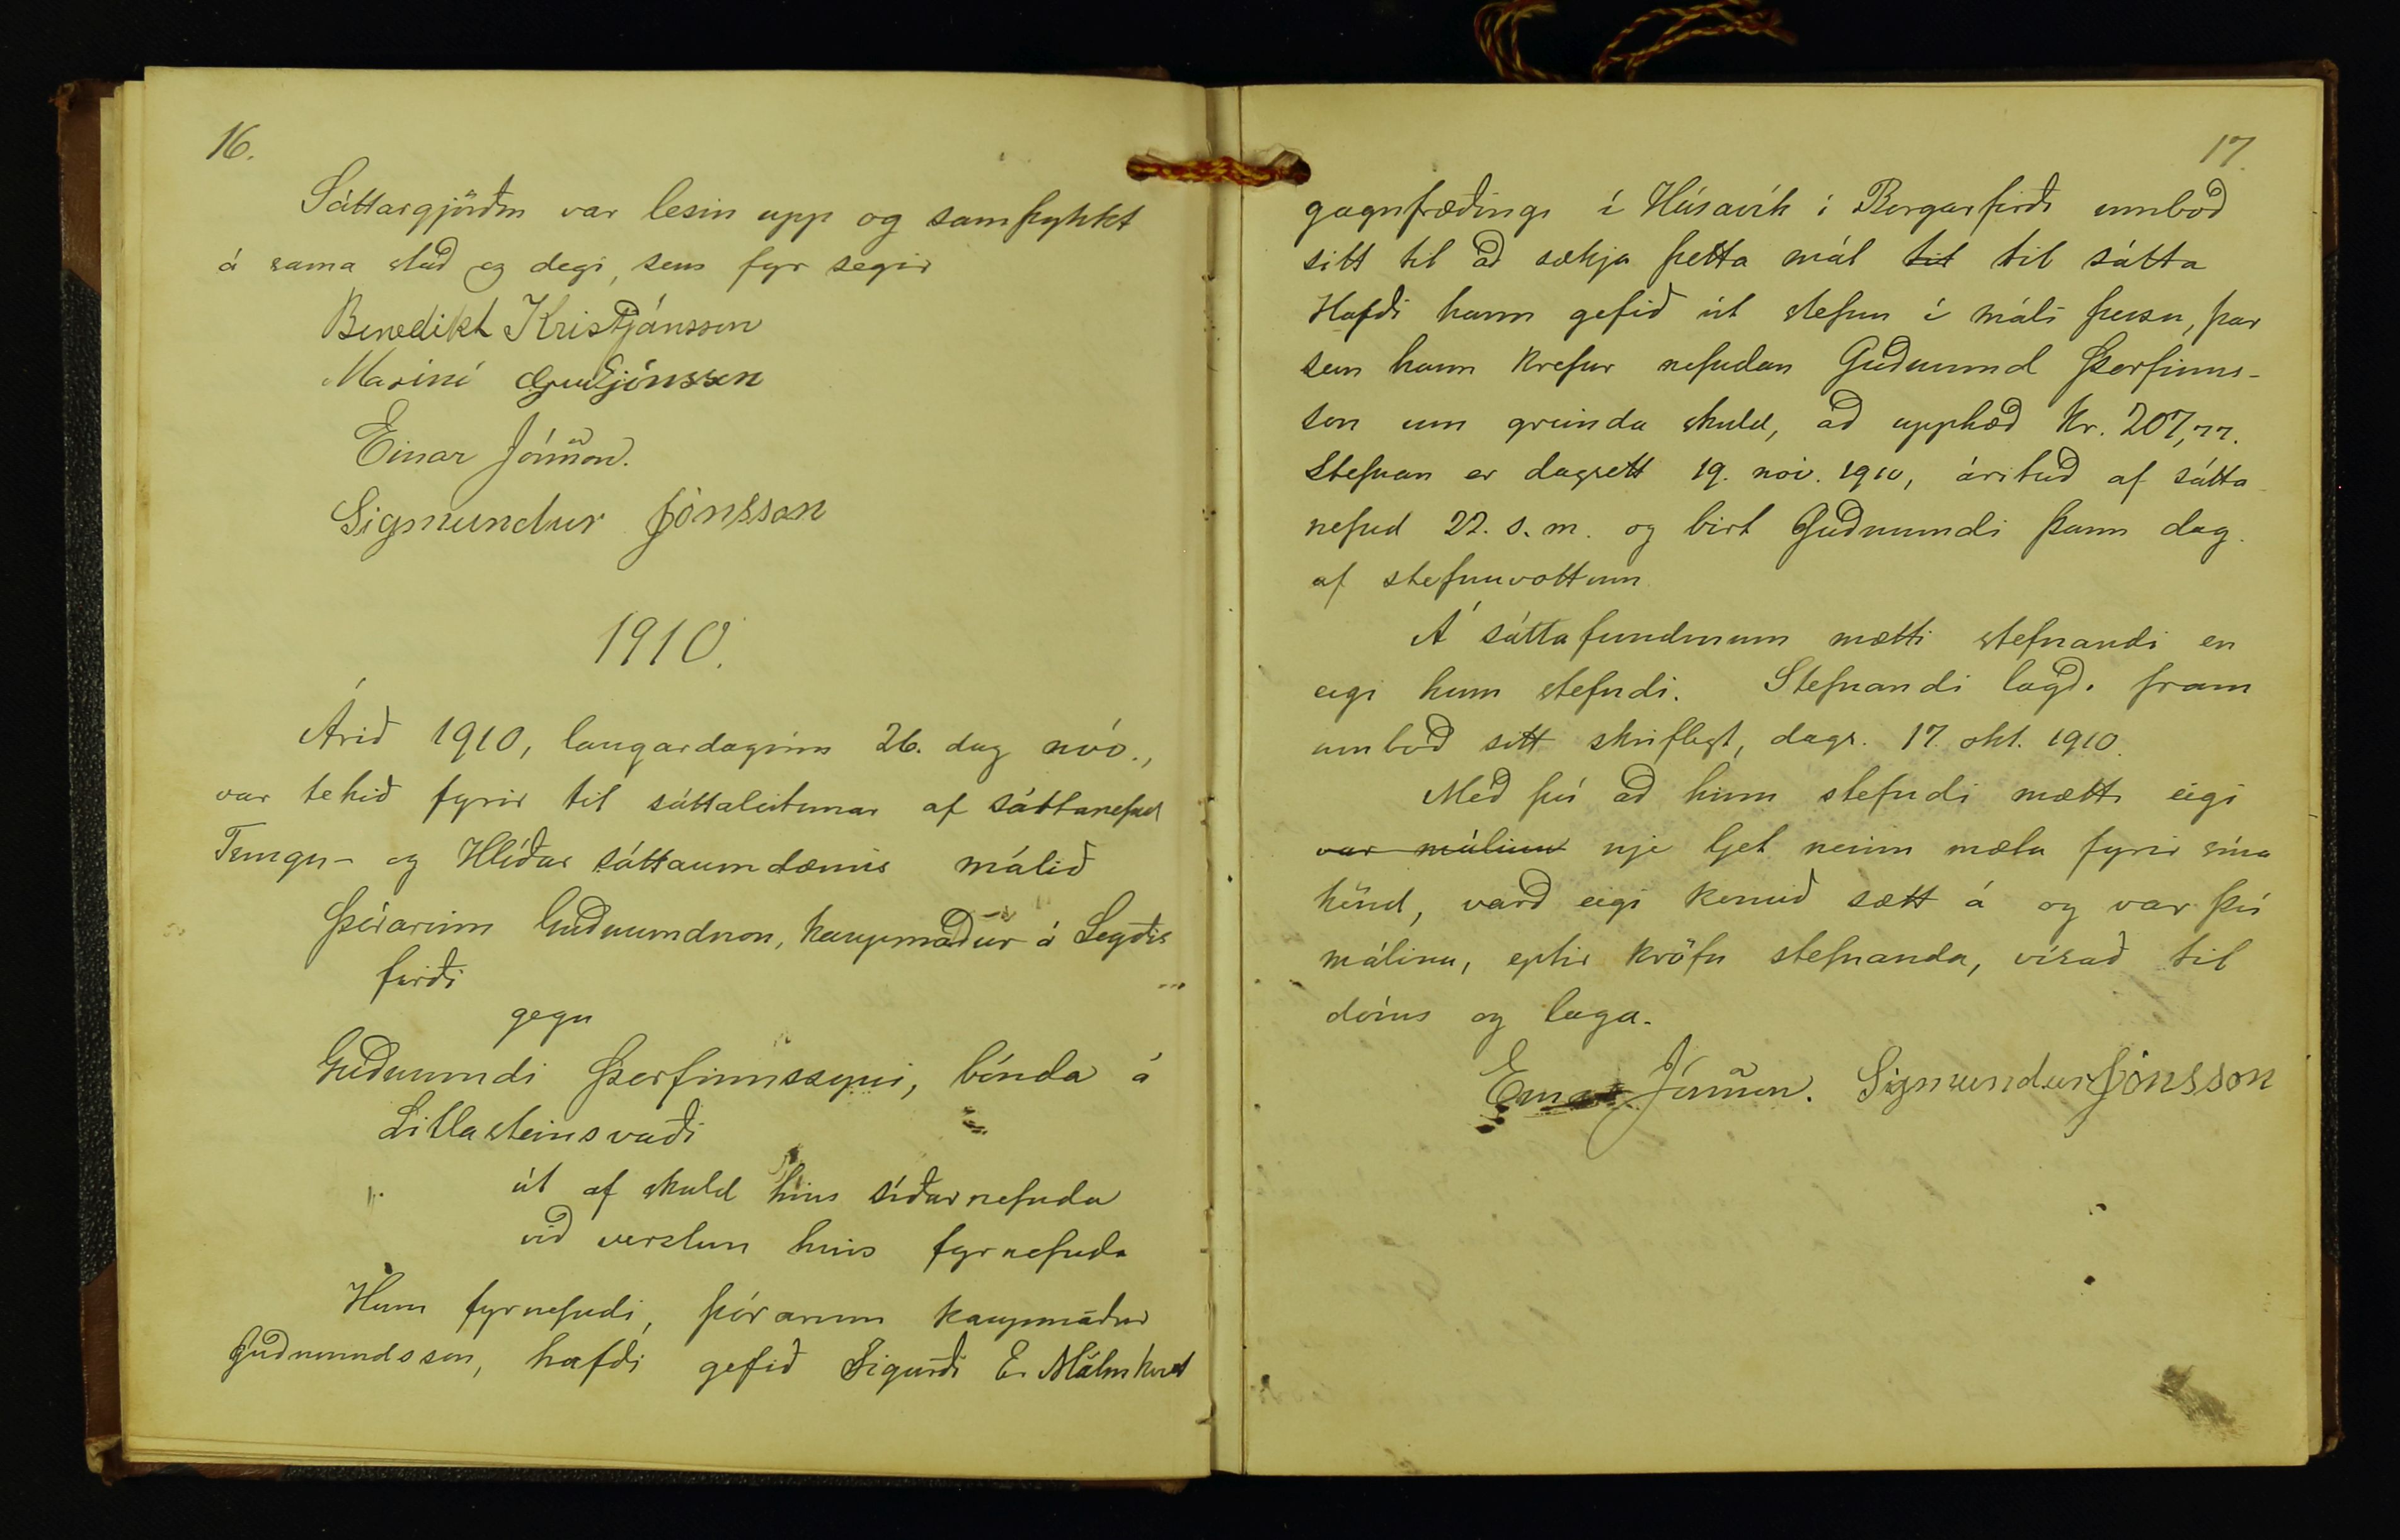 16.
Sáttargjörðin var lesin upp og samþykkt
á sama stað og degi, sem fyr segir
Benedikt Kristjánsson
Einar Jónsson.
Sigmundur Jónsson
1910.
Árið 1910, laugardaginn 26. dag nóv.,
var tekið fyrir til sáttaleitunar af sáttanefnd
Tungu- og Hlíðar sáttaumdæmis málið
Þórarinn Guðmundsson, kaupmaður á Seyðis
firði
gegn
Guðmundi Þorfinnssyni, bónda á
Litlasteinsvaði
út af skuld hins síðarnefnda
við verslun hins fyrnefnda
Hinn fyrnefndi, Þórarinn kaupmaður
Guðmundsson, hafði gefið Sigurði E. Málmkvist
17.
gagnfræðingi í Húsavík í Borgarfirði umboð
sitt til að sækja þetta mál til til sátta
Hafði hann gefið út stefnu í máli þessu, þar
sem hann krefur nefndan Guðmund Þorfinns-
son um greinda skuld, að upphæð kr. 207,77.
Stefnan er dagsett 19. nóv. 1910, árituð af sátta
nefnd 22. s. m. og birt Guðmundi þann dag
af stefnuvottum
Á sáttafundinum mætti stefnandi en
eigi hinn stefndi. Stefnandi lagði fram
umboð sitt skriflegt, dags. 17. okt. 1910.
Með því að hinn stefndi mætti eigi
var málinu nje ljet neinn mæta fyrir sína
hönd, varð eigi komið sætt á og var því
málinu, eptir kröfu stefnanda, vísað til
dóms og laga.
Einar Jónsson. Sigmundur Jónsson